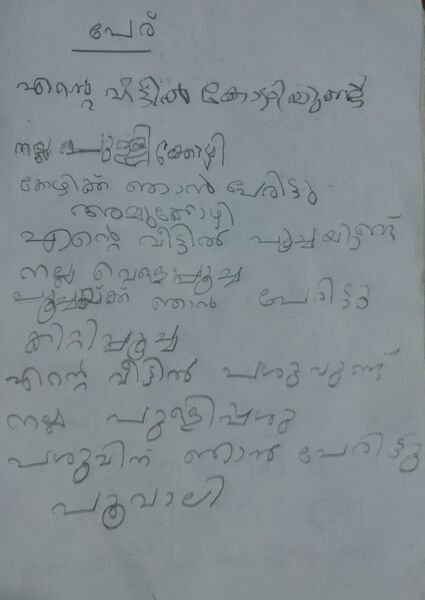 പേര്
എന്റെ വീട്ടിൽ കോഴിയുണ്ട്
നല്ല പുള്ളിക്കോഴി
കോഴിക്ക് ഞാൻ പേരിട്ടു
അമ്മുക്കോഴി
എന്റെ വീട്ടിൽ പൂച്ചയുണ്ട്
നല്ല വെള്ളപൂച്ച
പൂച്ചയ്ക്ക് ഞാൻ പേരിട്ടു
കിറ്റിപ്പൂച്ച
എന്റെ വീട്ടിൽ പശുവുണ്ട്
നല്ല പുള്ളിപ്പശു
പശുവിന് ഞാൻ പേരിട്ടു
പൂവാലി